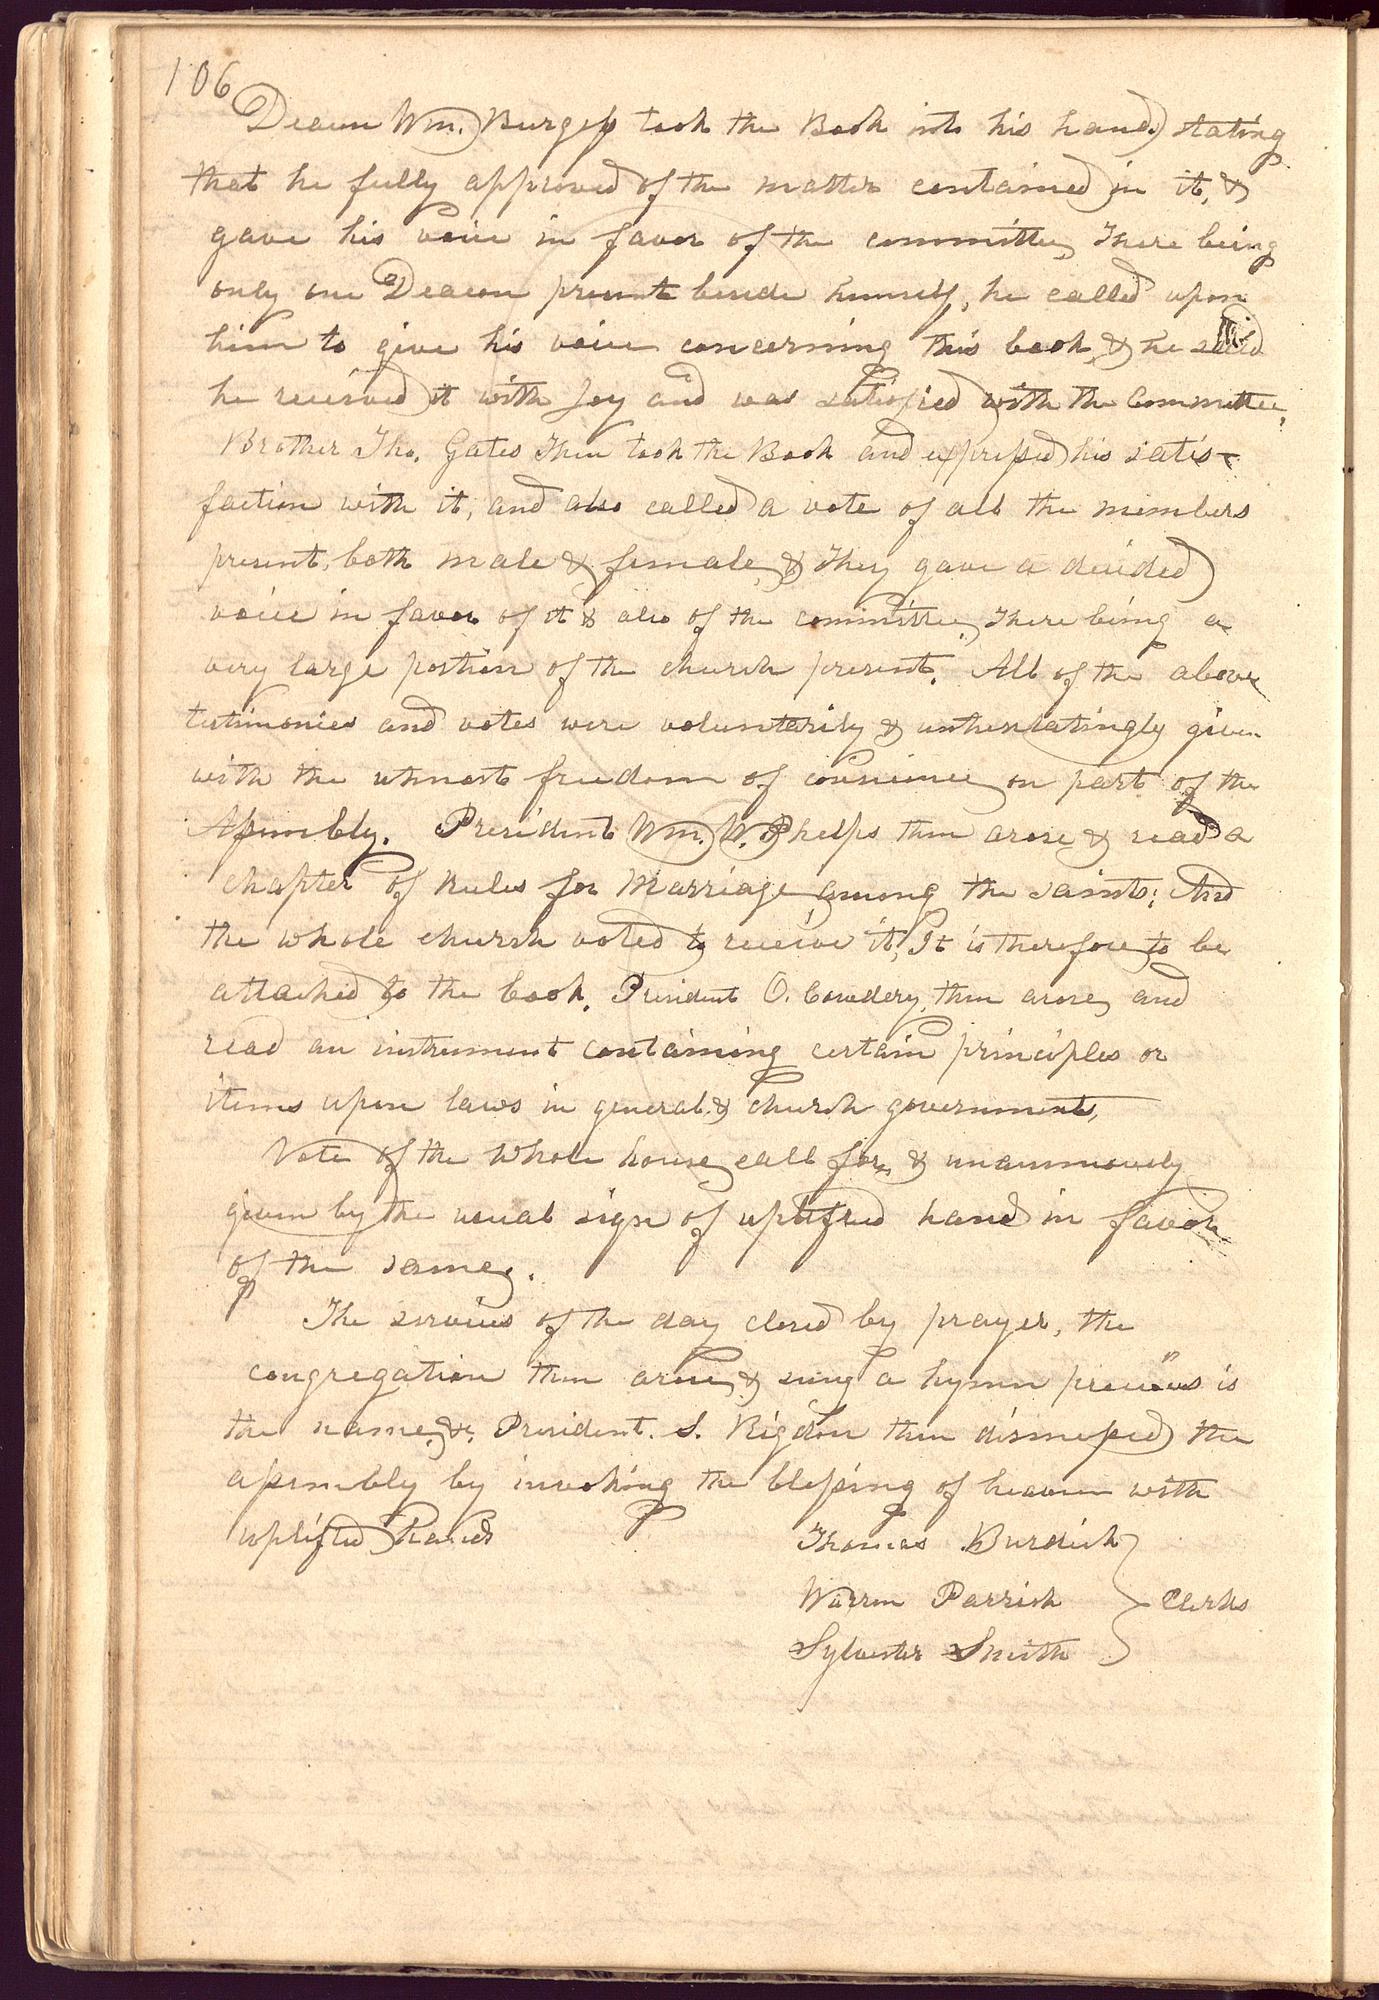 106
Deacon Wm. Burgess took the Book into his hand, stating
that he fully approved of the matter contained in it, &
gave his voice in favor of the committee, There being
only one Deacon present beside himself, he called upon
him to give his voice concerning this book, & he said
he received it with Joy and was satisfied with the Committee,
Brother Tho. Gates then took the Book and expressed his satis-
faction with it, and also called a vote of all the members
present, both male & female, & They gave a decided
voice in favor of it & also of the committee, There being a
very large portion of the church present. All of the above
testimonies and votes were voluntarily & unhesitatingly given
with the utmost freedom of conscience on part of the
Assembly. President Wm. W. Phelps then arose & read a
chapter of Rules for Marriage among the saints; And
the whole church voted to receive it, It is therefore to be
attached to the book. President O. Cowdery, then arose, and
read an instrument containing certain principles or
items upon laws in general & church government,
Vote of the whole house, call for, & unanimously
given by the usual sign of uplifted hand in favor
of the same.
The services of the day closed by prayer, the
congregation then arose & sung a hymn precious is
the name, &c. President. S. Rigdon then dismissed the
assembly by invoking the blessing of heaven with
uplifted hands
Thomas Burdick
Warren Parrish } Clerks
Sylvester Smith